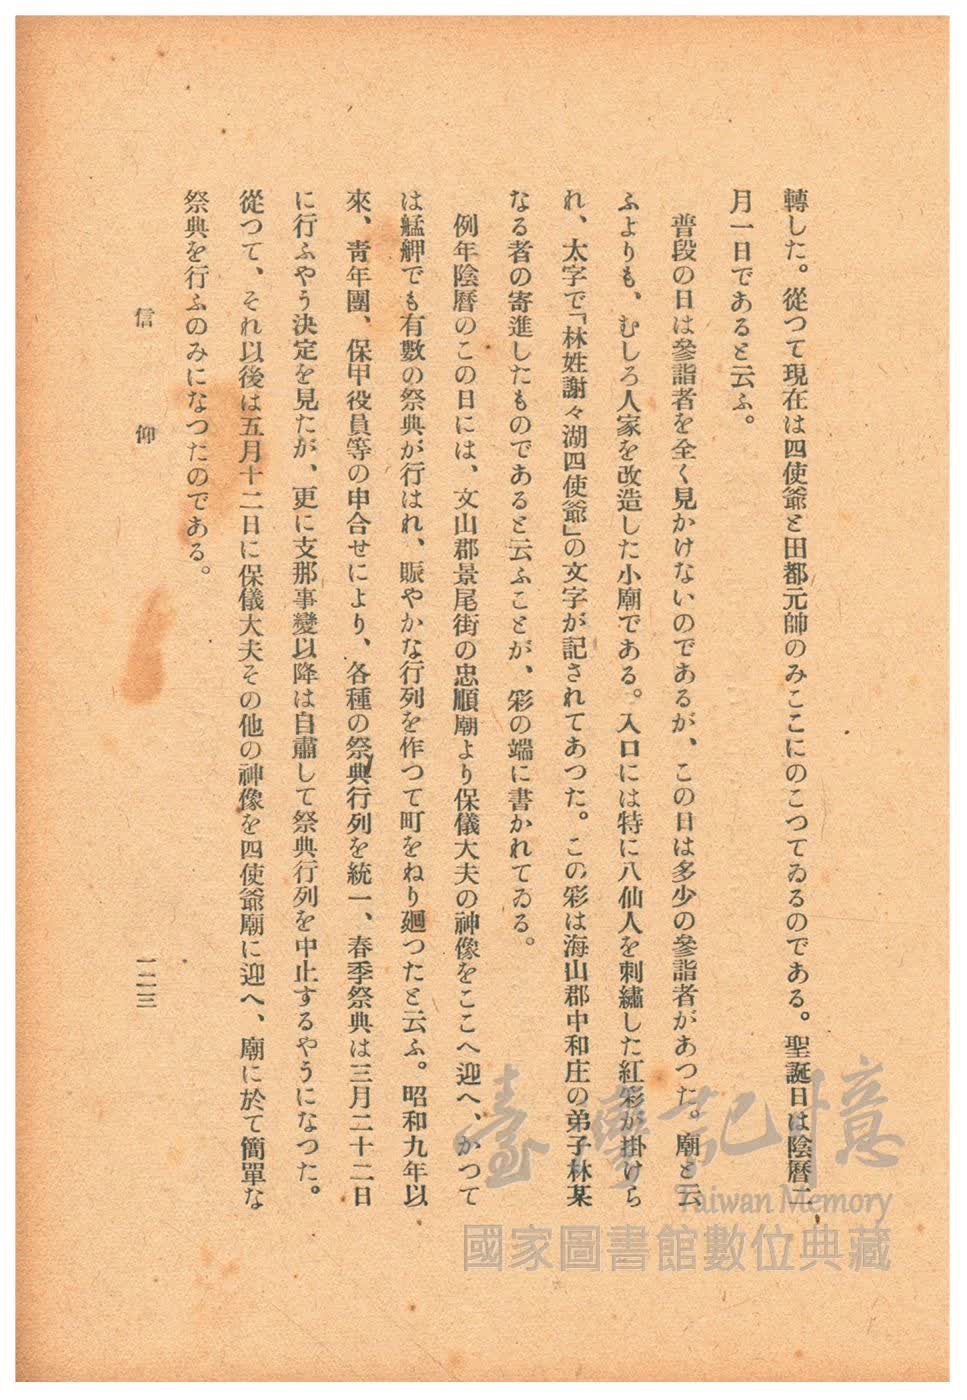 轉した。從つて現在は四使爺と田都元帥のみここにのこつてゐるのである。聖誕日は陰曆二
月一日であると云ふ。
普段の日は參詣者を全く見かけないのであるが、この日は多少の參詣者があつた。廟と云
ふよりも、むしろ人家を改造した小廟である。入口には特に八仙人を刺繡した紅彩が掛けら
れ、太字で「林姓謝々湖四使爺」の文字が記されてあつた。この彩は海山郡中和庄の弟子林某
なる者の寄進したものであると云ふことが、彩の端に書かれてゐる。
例年陰曆のこの日には、文山郡景尾街の忠順廟より保儀大夫の神像をここへ迎へ、かつて
は艋舺でも有數の祭典が行はれ、賑やかな行列を作つて町をねり廻つたと云ふ。昭和九年以
來、靑年團、保甲役員等の申合せにより、各種の祭典行列を統一、春季祭典は三月二十二日
に行ふやう決定を見たが、更に支那事變以降は自肅して祭典行列を中止するやうになつた。
從つて、それ以後は五月十二日に保儀大夫その他の神像を四使爺廟に迎へ、廟に於て簡單な
祭典を行ふのみになつたのである。
信仰
一二三
臺灣記憶
Taiwan Memory
國家圖書館數位典藏